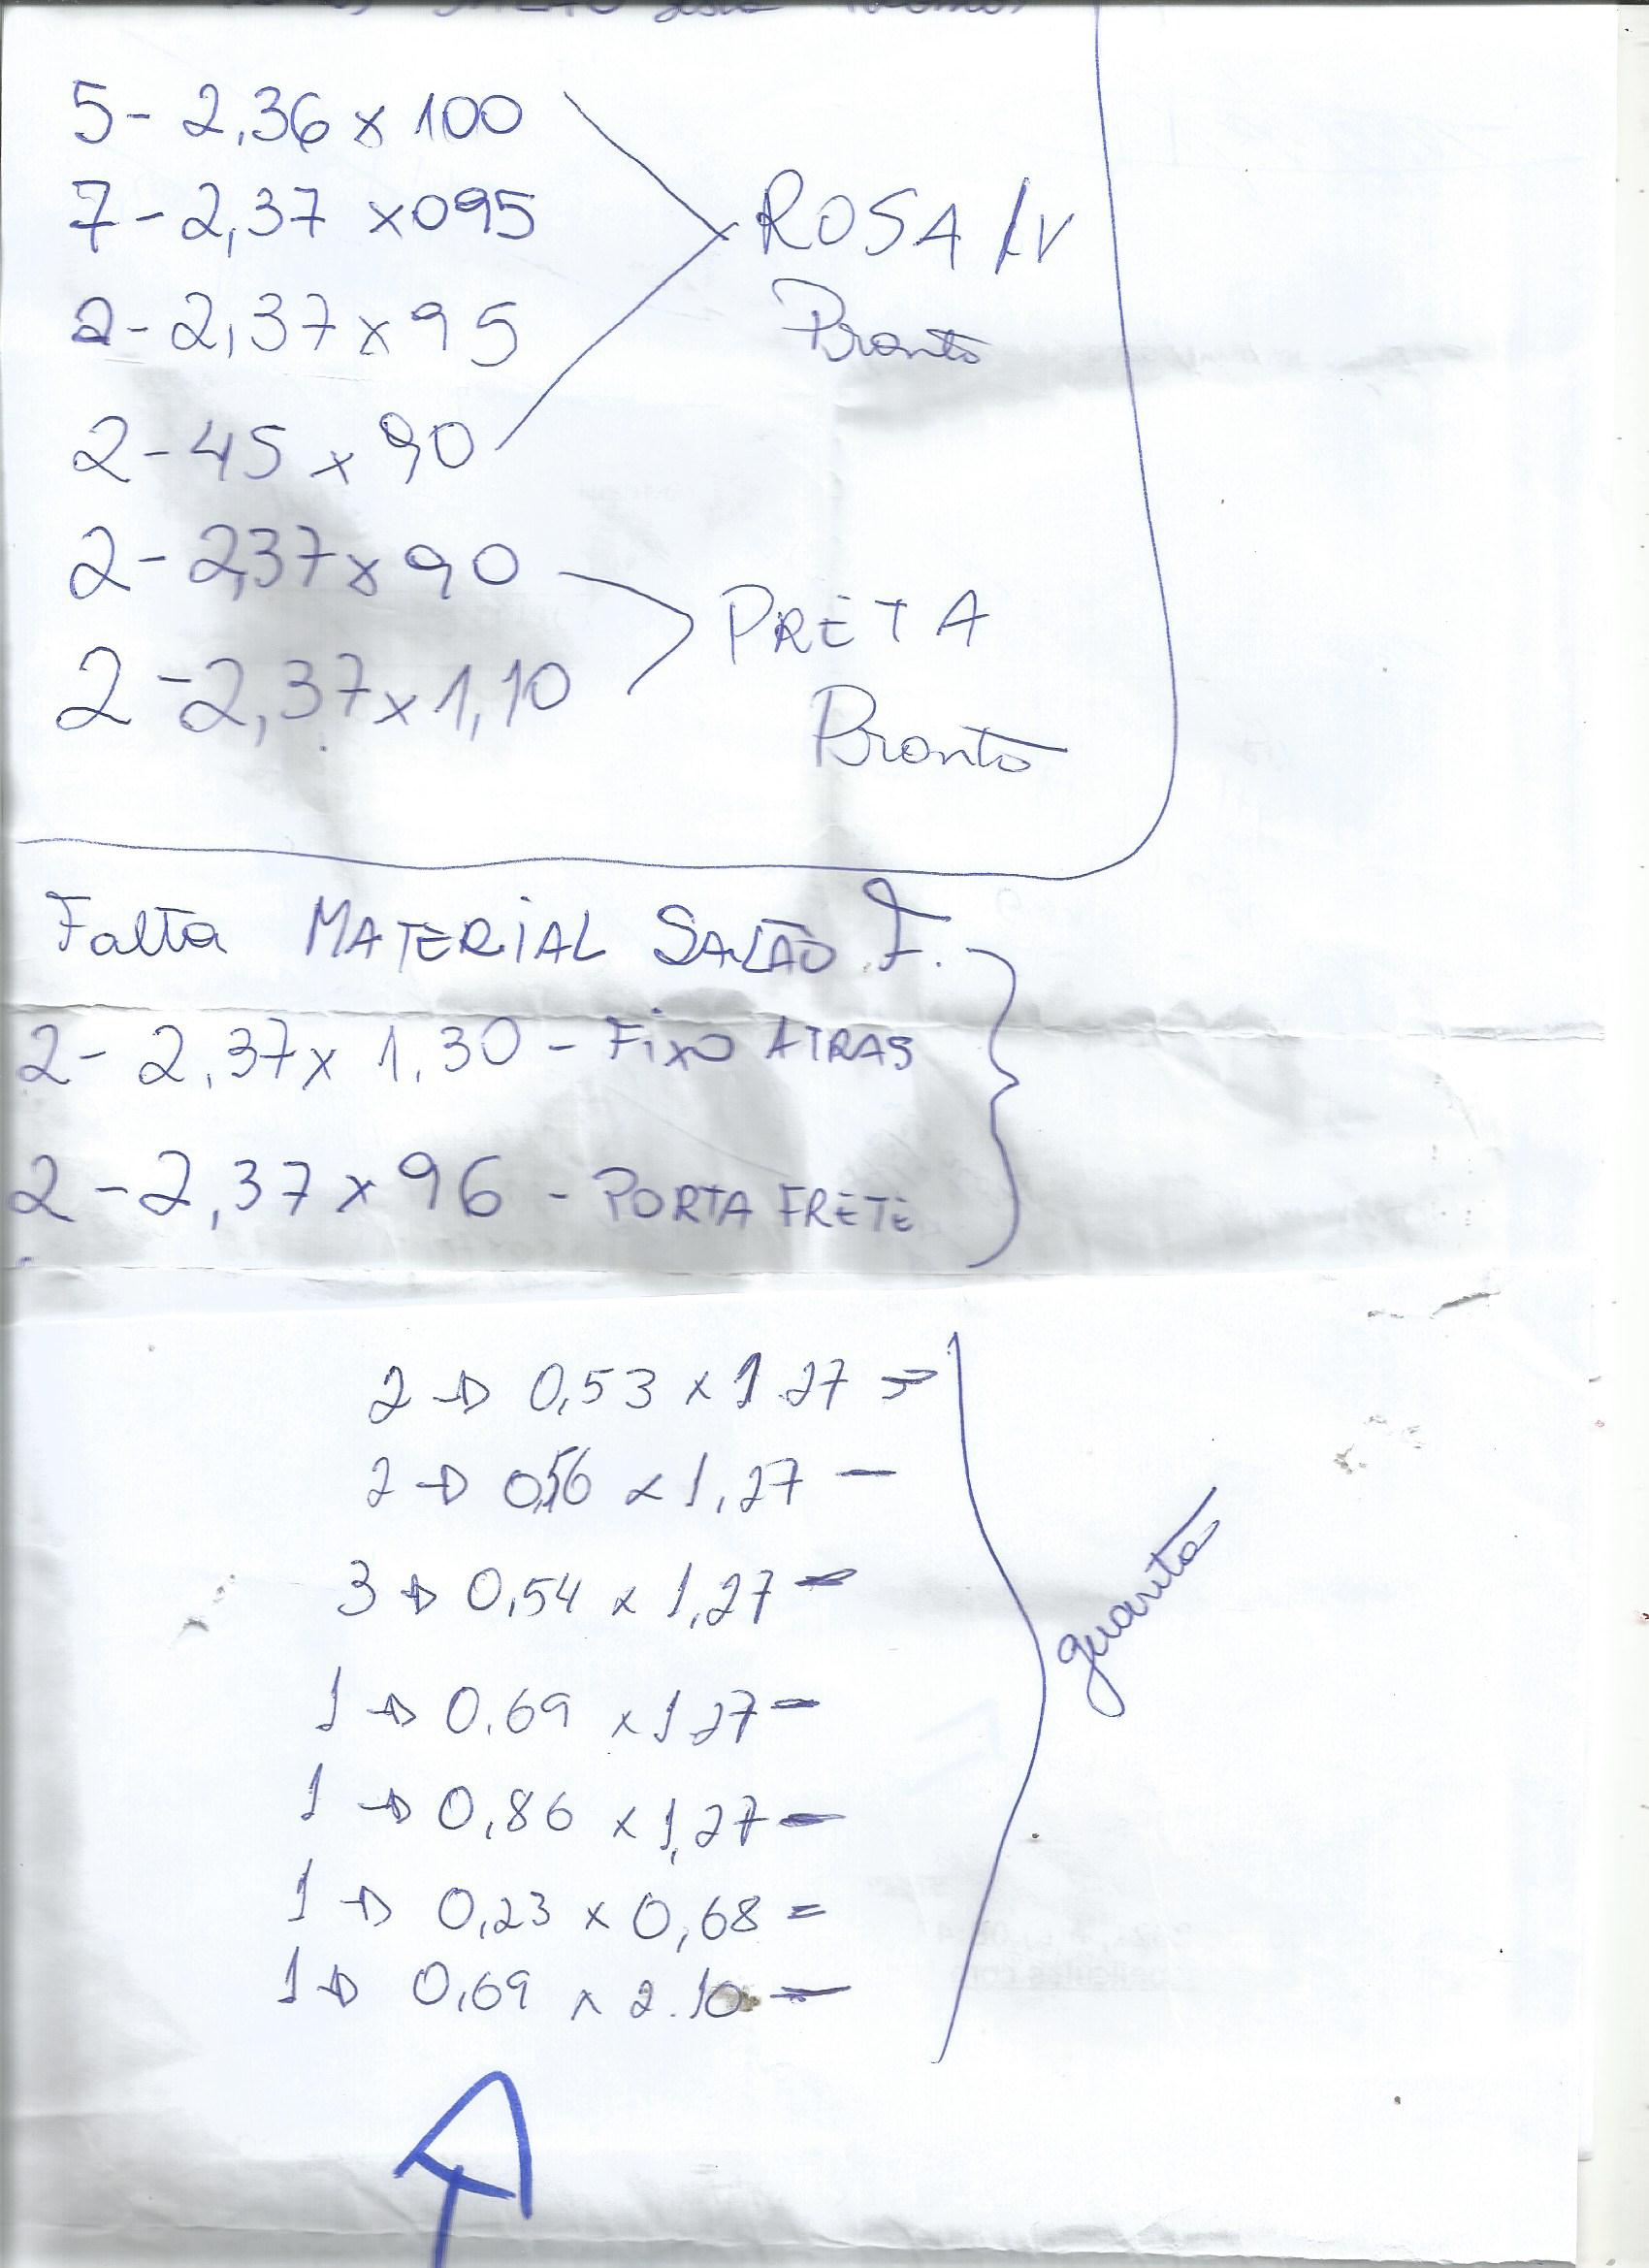 SALÃO
5 - 2,36 x 100
7 - 2,37 x 095
2 - 2,37 x 95
2 - 45 x 90
ROSA
Pronto
2 - 2,37 x 90
2 - 2,37 x 1,10
PRETA
Pronto
Falta MATERIAL SALÃO F.
2 - 2,37 x 1,30 - FIXO ATRAS
2 - 2,37 x 96 - PORTA FRETE
2 → 0,53 x 1.27 =
2 → 0,56 x 1,27 -
3 → 0,54 x 1,27 =
1 → 0.69 x 1.27 =
1 → 0,86 x 1,27 =
1 → 0,23 x 0,68 =
1 → 0,69 x 2.10 =
guarita